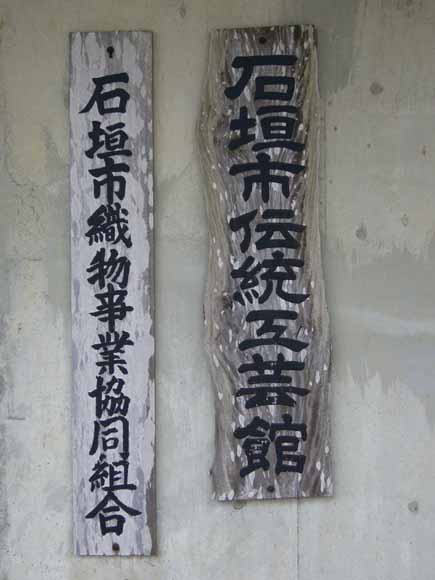 石垣市伝統工芸館
石垣市織物事業協同組合